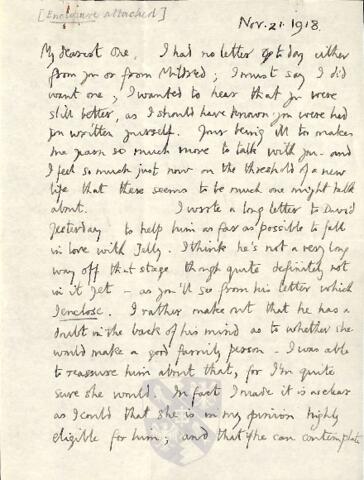 [Enclosure attached]
Nov. 21. 1918.
My dearest One. I had no letter today either
from you or from Mildred; I must say I did
want one; I wanted to hear that you were
still better, as I should have known you were had
you written yourself. Your being ill to makes
me yearn so much more to talk with you - and
I feel so much just now on the threshold of a new
life that there seems to be much one might talk
about. I wrote a long letter to David
yesterday to help him as far as possible to fall
in love with Jelly. I think he's not a very long
way off that stage though quite definitely not
in it yet - as you'll see from his letter which
I enclose. I rather make out that he has a
doubt in the back of his mind as to whether she
would make a good family person - I was able
to reassure him about that, for I'm quite
sure she would. In fact I made it as clear
as I could that she is in my opinion highly
eligible for him; and that if he can contemplate